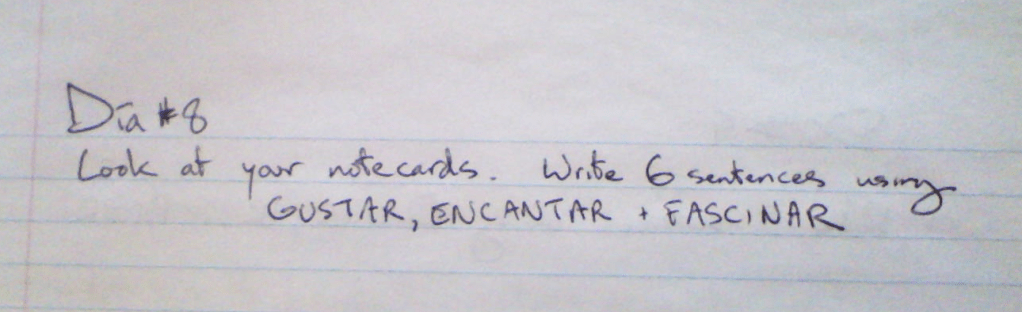 Día #8
Look at your notecards. Write 6 sentences using
GUSTAR, ENCANTAR + FASCINAR